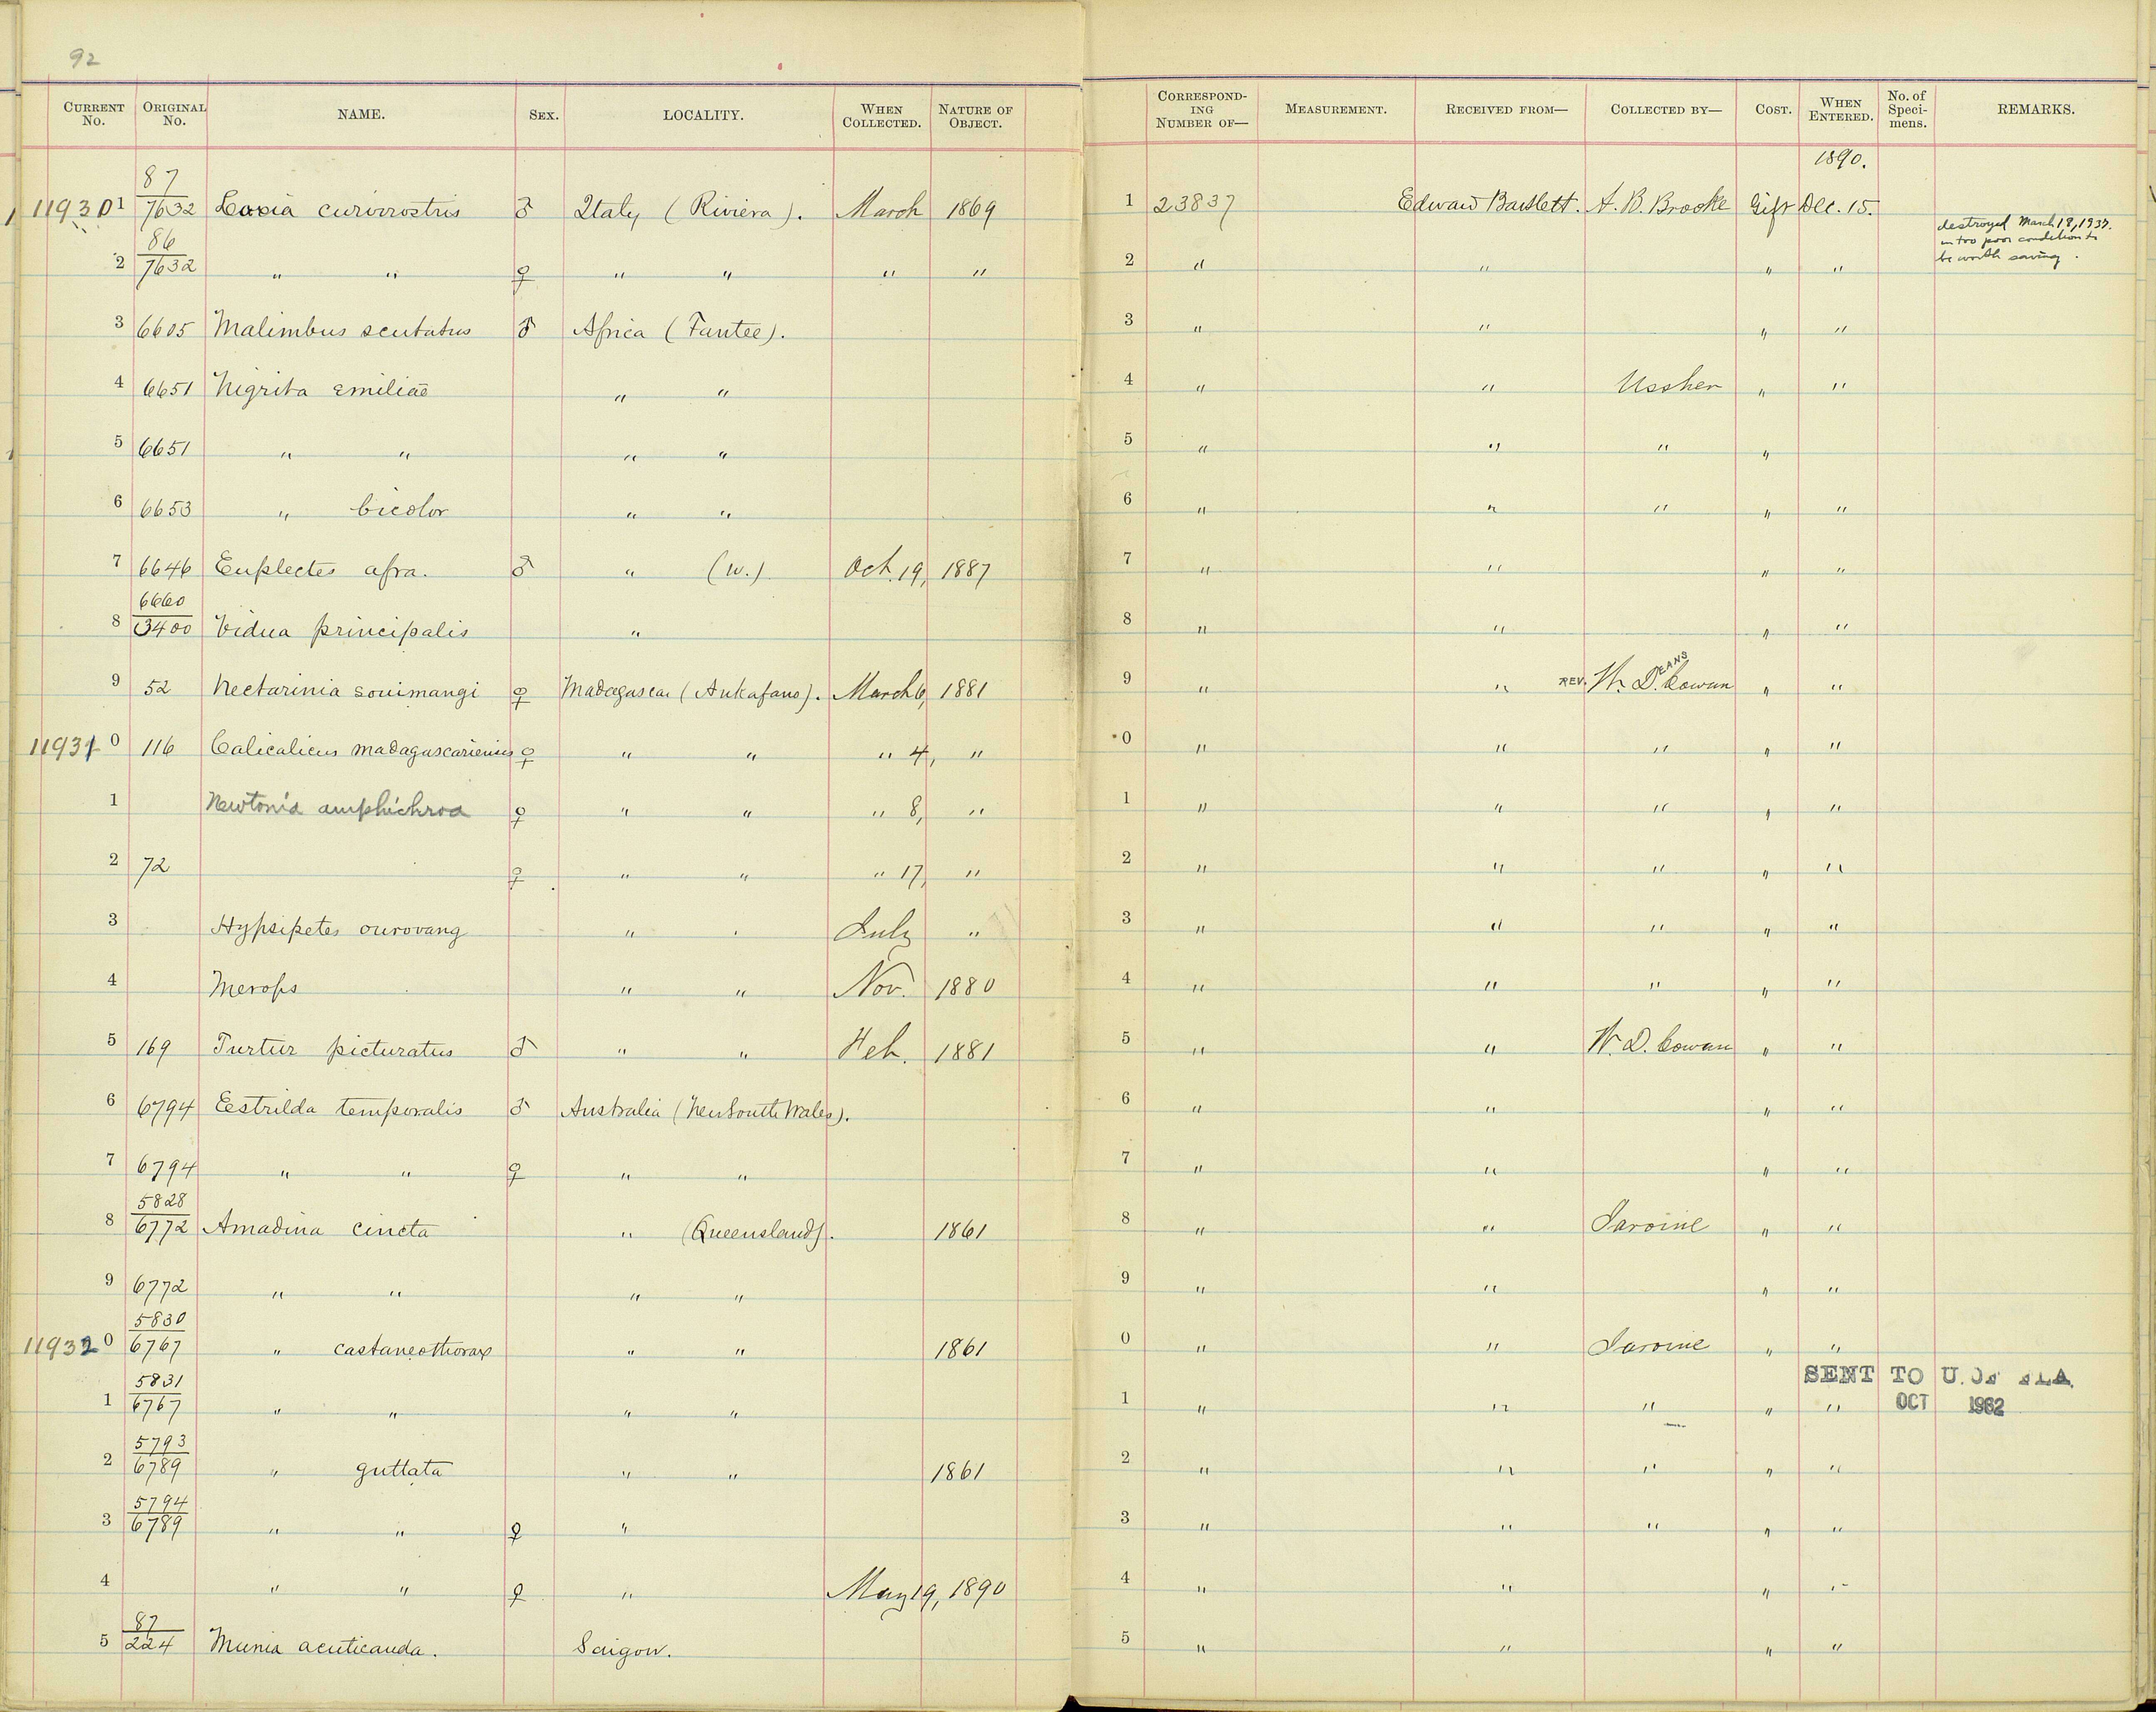 92
CURRENT No. ORIGINAL No. NAME. SEX. LOCALITY. WHEN COLLECTED. NATURE OF OBJECT. CORRESPONDING NUMBER OF— MEASUREMENT. RECEIVED FROM— COLLECTED BY— COST. WHEN ENTERED. No. of Specimens. REMARKS.
1890.
11930 1 87/7632 Loxia curvirostris ♂ Italy (Riviera). March 1869 1 23837 Edward Bartlett. A. B. Brooke Gift Dec. 15.
destroyed March 18, 1937.
in too poor condition to
be worth saving.
2 86/7632 " " ♀ " " " " 2 " " " "
3 6605 Malimbus scutatus ♂ Africa (Fantee). 3 " " " "
4 6651 Nigrita emiliae " " 4 " " Ussher " "
5 6651 " " " " 5 " " " "
6 6653 " bicolor " " 6 " " " " "
7 6646 Euplectes afra. ♂ " (W.) Oct. 19, 1887 7 " " " "
8 6660/3400 Vidua principalis " 8 " " " "
9 52 Nectarinia souimangi ♀ Madagascar (Ankafano). March 6, 1881 9 " " REV. W. DEANS Cowan " "
11931 0 116 Calicalicus madagascariensis ♀ " " " 4, " 0 " " " " "
1 Newtonia amphichroa ♀ " " " 8, " 1 " " " " "
2 72 ♀ " " " 17, " 2 " " " " "
3 Hypsipetes ourovang " July " 3 " " " " "
4 Merops " " Nov. 1880 4 " " " " "
5 169 Turtur picturatus ♂ " " Feb. 1881 5 " " W. D. Cowan " "
6 6794 Estrilda temporalis ♂ Australia (New South Wales). 6 " " " "
7 6794 " " ♀ " " 7 " " " "
8 5828/6772 Amadina cincta " (Queensland). 1861 8 " " "
9 6772 " " " " 9 " " " "
11932 0 5830/6767 " castaneothorax " " 1861 0 " " " "
SENT TO U. OF FLA.
1 5831/6767 " " " " 1 " " " " " OCT 1962
2 5793/6789 " guttata " " 1861 2 " " " " "
3 5794/6789 " " ♀ " 3 " " " " "
4 " " ♀ " May 19, 1890 4 " " " "
5 87/224 Munia acuticauda. Saigon. 5 " " " "